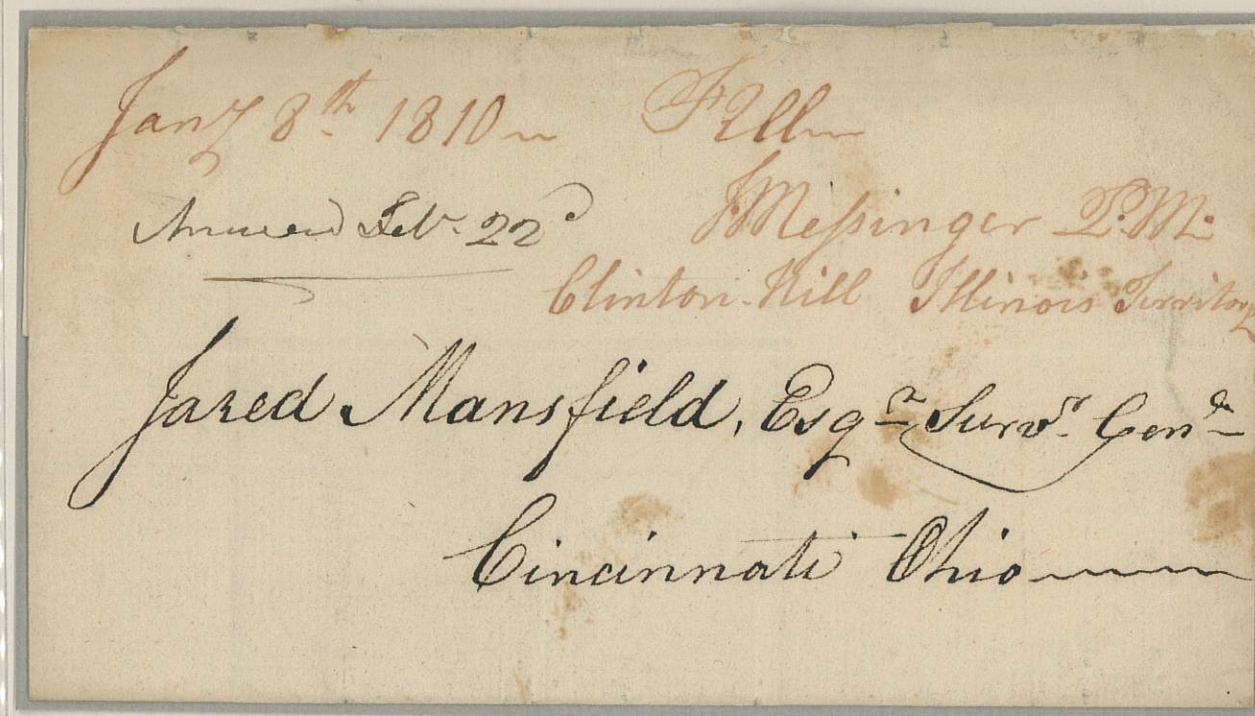 Jany 8th 1810 Free
Answered Feb. 22d JMessinger P.M.
Clinton-Hill Illinois Territory
Jared Mansfield, Esqr Survr Genl
Cincinnati Ohio